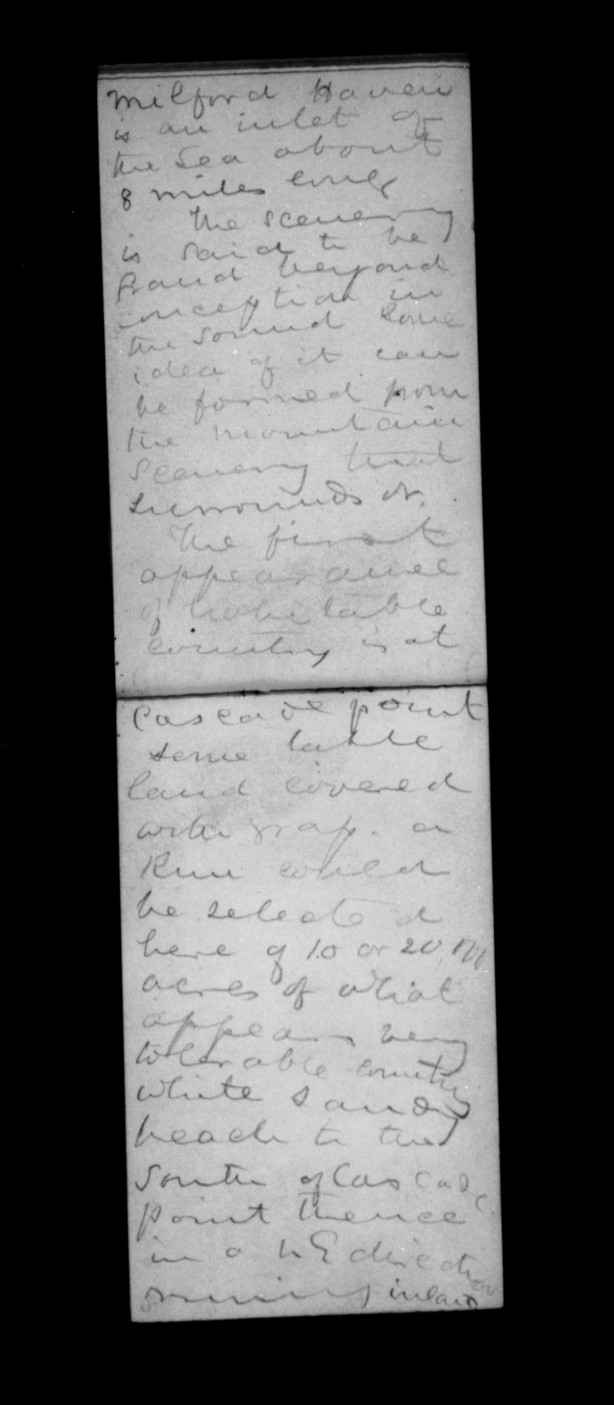 Milford Haven
is an inlet of
the Sea about
8 miles long
The scenery
is said to be
Grand beyond
conception in
the sound some
idea of it can
be formed from
the mountain
Scenery that
surrounds it.
The first
appearance
of habitable
country is at
Cascade point
some table
land covered
with grass. a
Run could
be selected
here of 10 or 20 M
acres of what
appears very
tolerable country
white sandy
beach to the
South of Cascade
point thence
in a NE direction
running inland